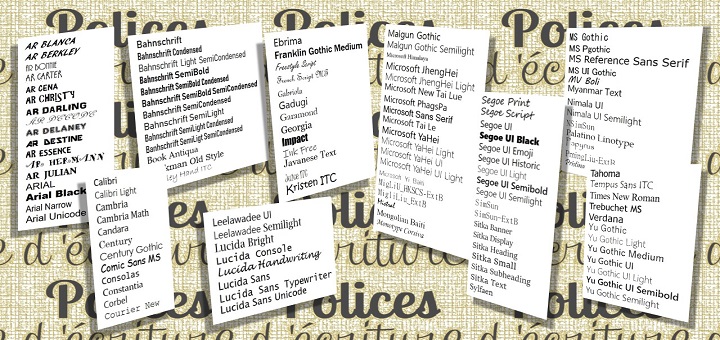 Polices
Polices
Polices
d'écriture
AR BLANCA
AR BERKLEY
AR BONNIE
AR CARTER
AR CENA
AR CHRISTY
AR DARLING
AR DECODE
AR DELANEY
AR DESTINE
AR ESSENCE
AR HERMANN
AR JULIAN
ARIAL
Arial Black
Arial Narrow
Arial Unicode
Bahnschrift
Bahnschrift Condensed
Bahnschrift Light SemiCondensed
Bahnschrift SemiBold
Bahnschrift SemiBold Condensed
Bahnschrift SemiBold SemiCondensed
Bahnschrift SemiCondensed
Bahnschrift SemiLight
Bahnschrift SemiLight Condensed
Bahnschrift SemiLight SemiCondensed
Book Antiqua
Old Style
Hand ITC
Calibri
Calibri Light
Cambria
Cambria Math
Candara
Century
Century Gothic
Comic Sans MS
Consolas
Constantia
Corbel
Courier New
Ebrima
Franklin Gothic Medium
Freestyle Script
French Script MT
Gabriola
Gadugi
Garamond
Georgia
Impact
Ink Free
Javanese Text
Juice ITC
Kristen ITC
Leelawadee UI
Leelawadee Semilight
Lucida Bright
Lucida Console
Lucida Handwriting
Lucida Sans
Lucida Sans Typewriter
Lucida Sans Unicode
Malgun Gothic
Malgun Gothic Semilight
Microsoft Himalaya
Microsoft JhengHei
Microsoft JhengHei Light
Microsoft New Tai Lue
Microsoft PhagsPa
Microsoft Sans Serif
Microsoft Tai Le
Microsoft YaHei
Microsoft YaHei Light
Microsoft YaHei UI
Microsoft YaHei UI Light
Microsoft Yi Baiti
MigLiU_HKSCS-ExtB
MigLiU_ExtB
Mistral
Mongolian Baiti
Monotype Corsiva
Segoe Print
Segoe Script
Segoe UI
Segoe UI Black
Segoe UI Emoji
Segoe UI Historic
Segoe UI Light
Segoe UI Semibold
Segoe UI Semilight
SimSun
SimSun-ExtB
Sitka Banner
Sitka Display
Sitka Heading
Sitka Small
Sitka Subheading
Sitka Text
Sylfaen
MS Gothic
MS Pgothic
MS Reference Sans Serif
MS UI Gothic
MV Boli
Myanmar Text
Nimala UI
Nimala UI Semilight
NSimSun
Palatino Linotype
Papyrus
PmingLiu-ExtB
Pristina
Tahoma
Tempus Sans ITC
Times New Roman
Trebuchet MS
Verdana
Yu Gothic
Yu Gothic Light
Yu Gothic Medium
Yu Gothic UI
Yu Gothic UI Light
Yu Gothic UI Semibold
Yu Gothic UI Semilight
Polices
Polices
Polices
d'écriture